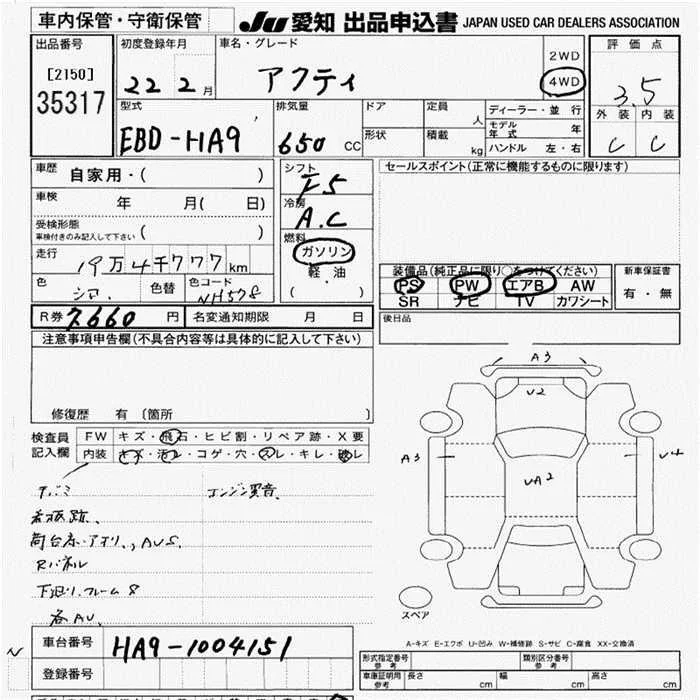 車内保管・守衛保管 JU 愛知 出品申込書 JAPAN USED CAR DEALERS ASSOCIATION
出品番号 初度登録年月 車名・グレード 2WD 評価点
[2150] 22 2月 アクティ 4WD 3.5
35317
型式 排気量 ドア 定員 人 ディーラー・並行 外装 内装
モデル年式 年
EBD-HA9 650 CC 形状 積載 kg ハンドル 左・右 C C
車歴 自家用・( ) シフト F5 セールスポイント(正常に機能するものに限ります)
車検 年 月( 日) 冷房 A.C
受検形態
車検付きのみ記入して下さい ( ) 燃料
走行 19万4千777km ガソリン
軽油
( )
装備品(純正品に限り○をつけてください) 新車保証書
色 シロ 色替 色コード NH578 PS PW エアB AW 有・無
SR ナビ TV カワシート
R券 7660円 名変通知期限 月 日 後日品
注意事項申告欄(不具合内容等は具体的に記入して下さい)
修復歴 有 〔箇所 〕
検査員記入欄 FW キズ・飛石・ヒビ割・リペア跡・X要
内装 キズ・汚レ・コゲ・穴・スレ・キレ・破レ
A3
U2
A3 U4
UA2
エンジン異音
看板跡、
荷台床・アオリ、AUS
Rパネル
下廻り、フレームS
各AU、
スペア
A-キズ E-エクボ U-凹み W-補修跡 S-サビ C-腐食 XX-交換済
N
車台番号 HA9-1004151
登録番号
形式指定番号 参考 類別区分番号 参考
車庫証明用 参考 長さ cm 幅 cm 高さ cm